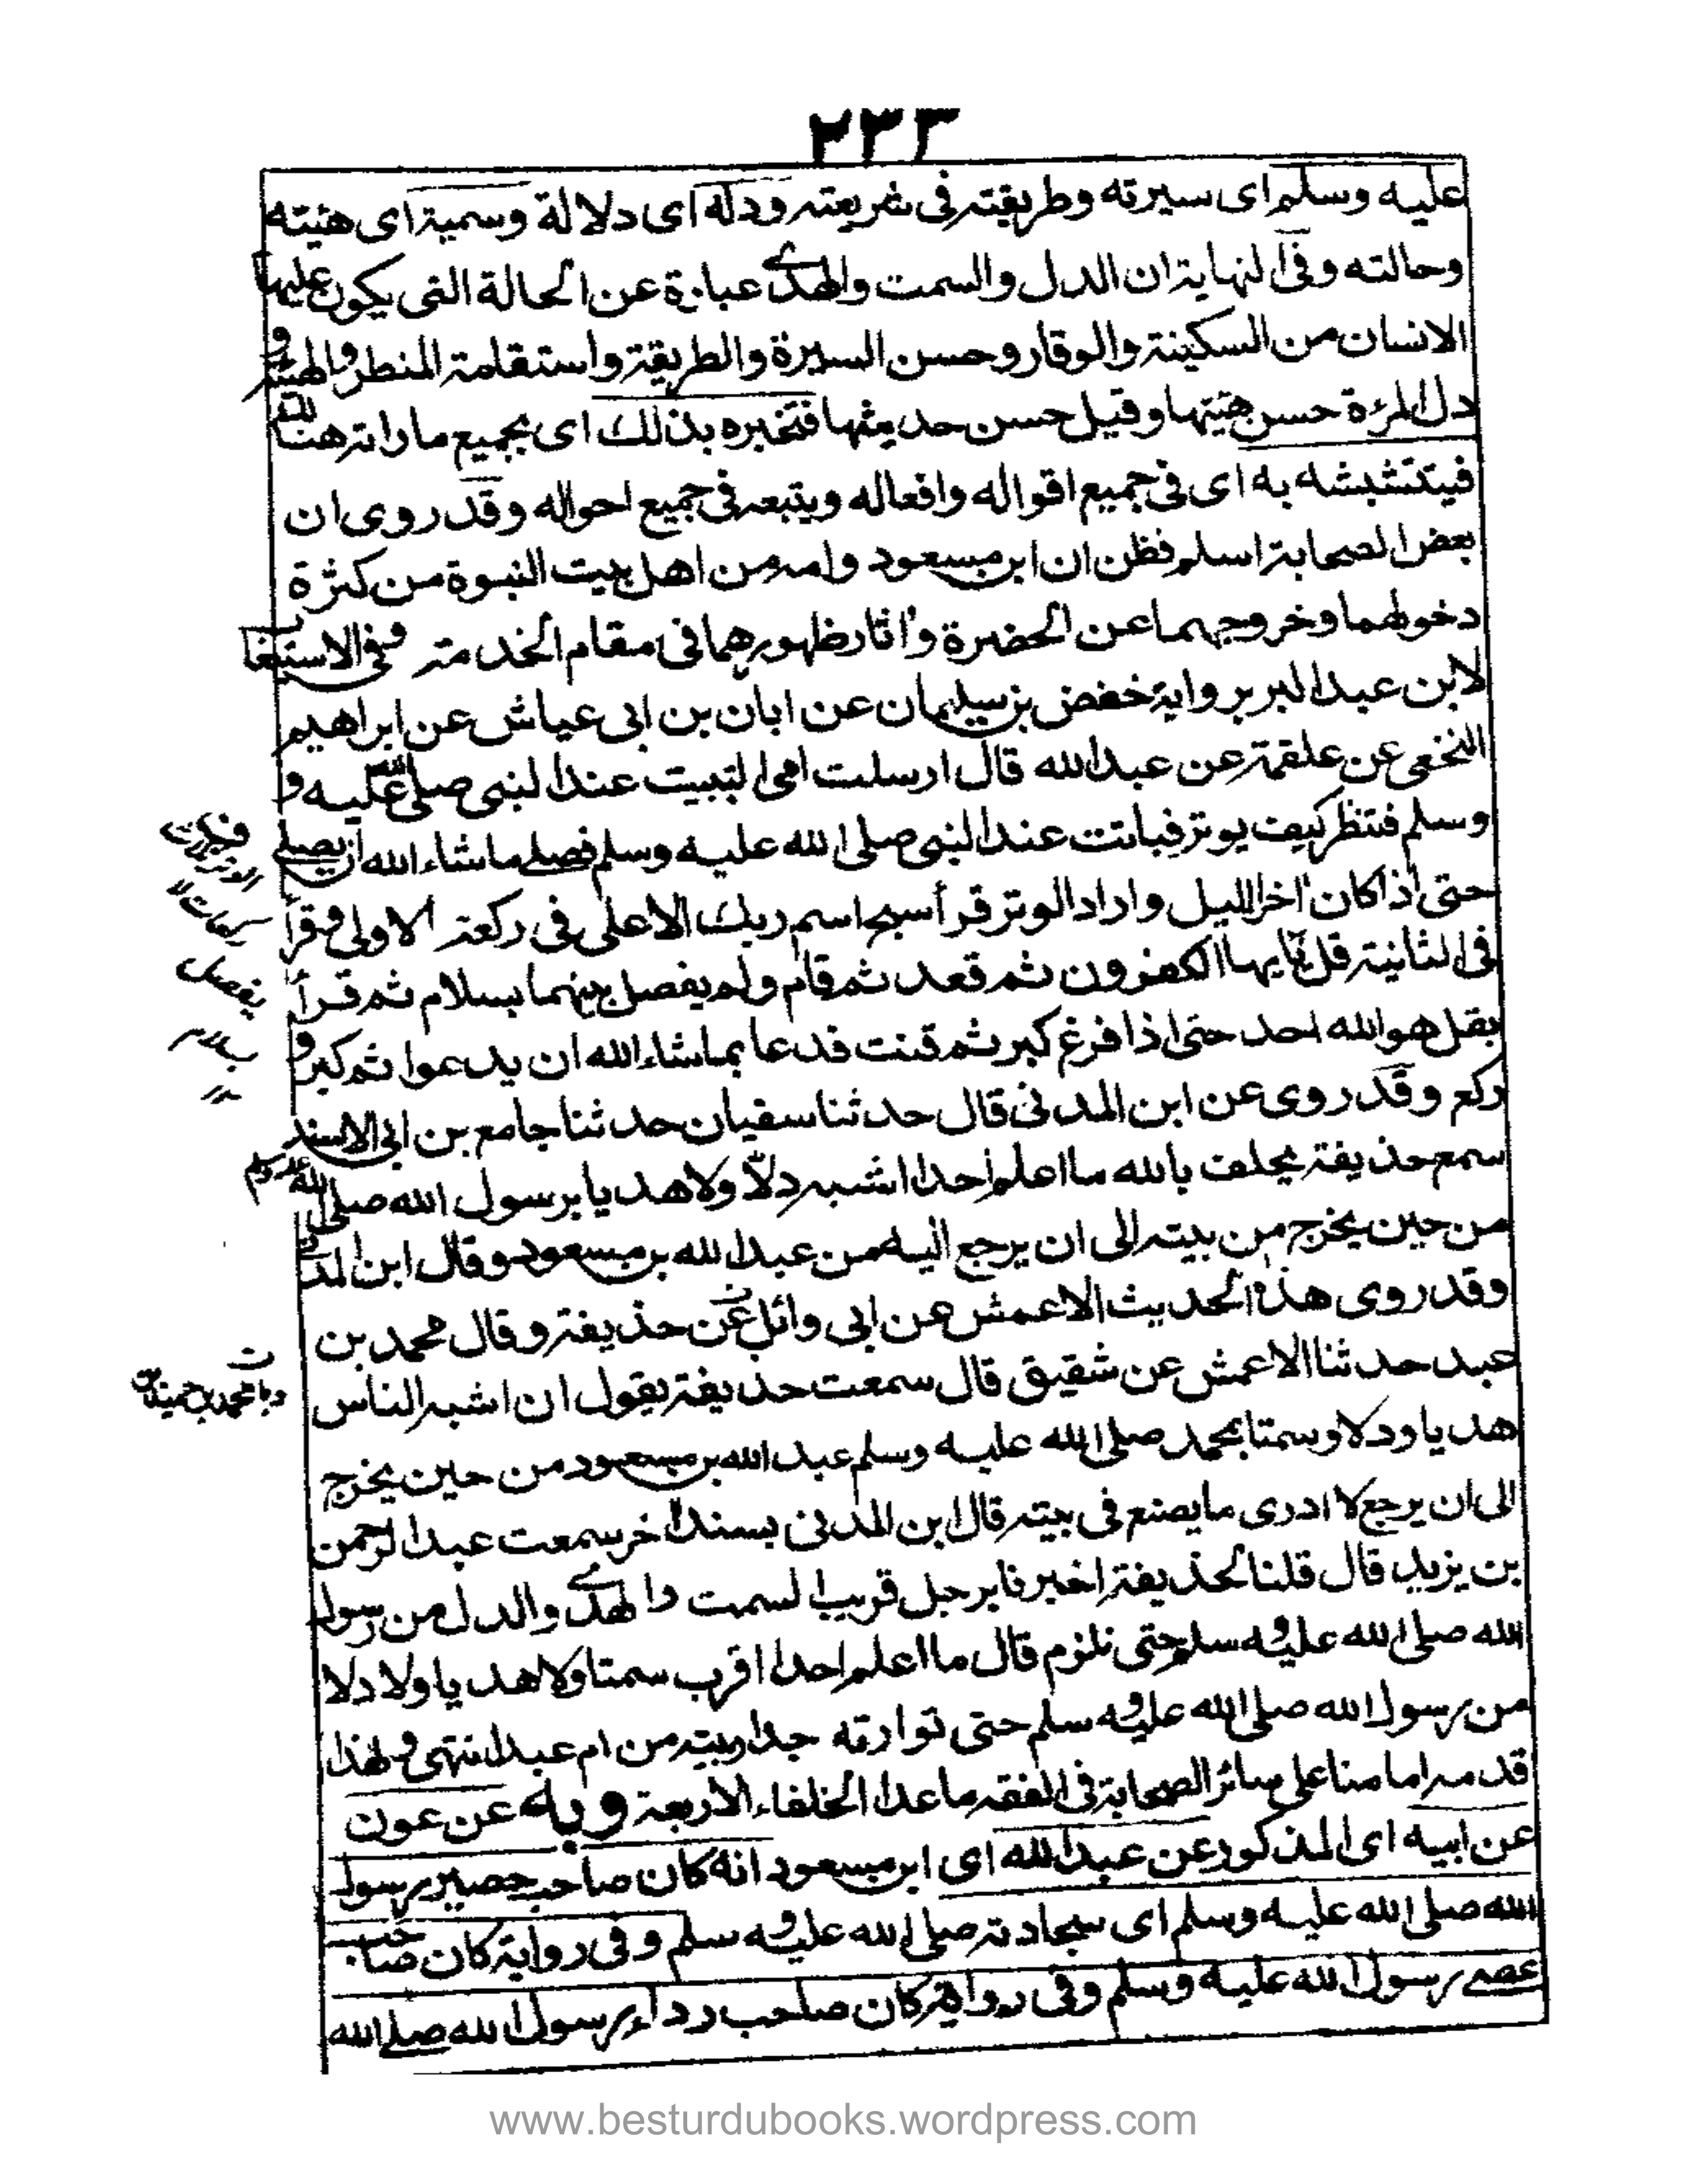 ٢٣٣
عليه وسلم اى سيرته وطريقته فى شريعته ودله اى دلالة وسميته اى هئيته
وحالته وفى النهاية ان الدل والسمت والهدى عبارة عن الحالة التى يكون عليها
الانسان من السكينة والوقار وحسن السيرة والطريقة واستقامة المنظر والهيئة و
دل المرءة حسن هيئتها وقيل حسن حديثها فتخبره بذلك اى بجميع ما راته هنالك
فيتشبه به اى فى جميع اقواله وافعاله ويتبعه فى جميع احواله وقد روى ان
بعض الصحابة اسلم فظن ان ابن مسعود وامه من اهل بيت النبوة من كثرة
دخولهما وخروجهما عن الحضرة واثار ظهورهما فى مقام الخدمة وفى الاستيعاب
لابن عبد البر برواية حفص بن سليمان عن ابان بن ابى عياش عن ابراهيم
النخعى عن علقمة عن عبد الله قال ارسلت امى لتبيت عند النبى صلى الله عليه و
وسلم فتنظر كيف يوتر فباتت عند النبى صلى الله عليه وسلم فصلى ماشاء الله ان يصلى
حتى اذا كان اخر الليل واراد الوتر قرأ سبح اسم ربك الاعلى فى ركعة الاولى وقرأ
فى الثانية قل يايها الكفرون ثم قعد ثم قام ولم يفصل بينهما بسلام ثم قرأ
بقل هو الله احد حتى اذا فرغ كبر ثم قنت فدعا بماشاء الله ان يدعوا ثم كبر و
ركع وقد روى عن ابن المدنى قال حدثنا سفيان حدثنا جامع بن ابى الاسند
سمع حذيفة يحلف بالله ما اعلم احدا اشبه دلاّ ولا هديا برسول الله صلى الله عليه وسلم
من حين يخرج من بيته الى ان يرجع اليه من عبد الله بن مسعود وقال ابن المدنى
وقد روى هذا الحديث الاعمش عن ابى وائل عن حذيفة وقال محمد بن
عبيد حدثنا الاعمش عن شقيق قال سمعت حذيفة يقول ان اشبه الناس
هديا ودلا وسمتا بمحمد صلى الله عليه وسلم عبد الله بن مسعود من حين يخرج
الى ان يرجع لا ادرى ما يصنع فى بيته قال ابن المدنى بسند اخر سمعت عبد الرحمن
بن يزيد قال قلنا لحذيفة اخبرنا برجل قريب السمت والهدى والدل من رسول
الله صلى الله عليه وسلم حتى نلزم قال ما اعلم احدا اقرب سمتا ولا هديا ولا دلا
من رسول الله صلى الله عليه وسلم حتى توارته جدار بيته من ام عبد انتهى ولهذا
قدمه امامنا على سائر الصحابة فى الفقه ما عدا الخلفاء الاربعة وبه عن عون
عن ابيه اى المذكور عن عبد الله اى ابن مسعود انه كان صاحب حصير رسول
الله صلى الله عليه وسلم اى سجادته صلى الله عليه وسلم وفى رواية كان صاحب
عصى رسول الله عليه وسلم وفى رواية كان صاحب رداء رسول الله صلى الله
يفصل
بسلام
www.besturdubooks.wordpress.com